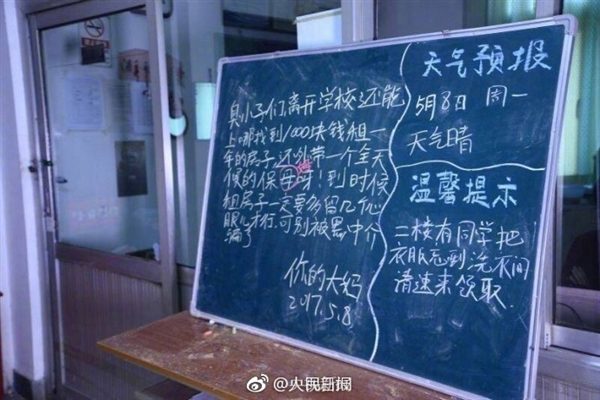 臭小子们,离开学校,还能
上哪找到1000块钱租一
年的房子,还外带一个全天
候的保母呀!到时候
租房子一定要多留几个心
眼儿才行,可别被黑中介
骗了
你的大妈
2017.5.8
天气预报
5月8日 周一
天气晴
温馨提示
二楼有同学把
衣服忘到洗衣间
请速来领取.
@央视新闻